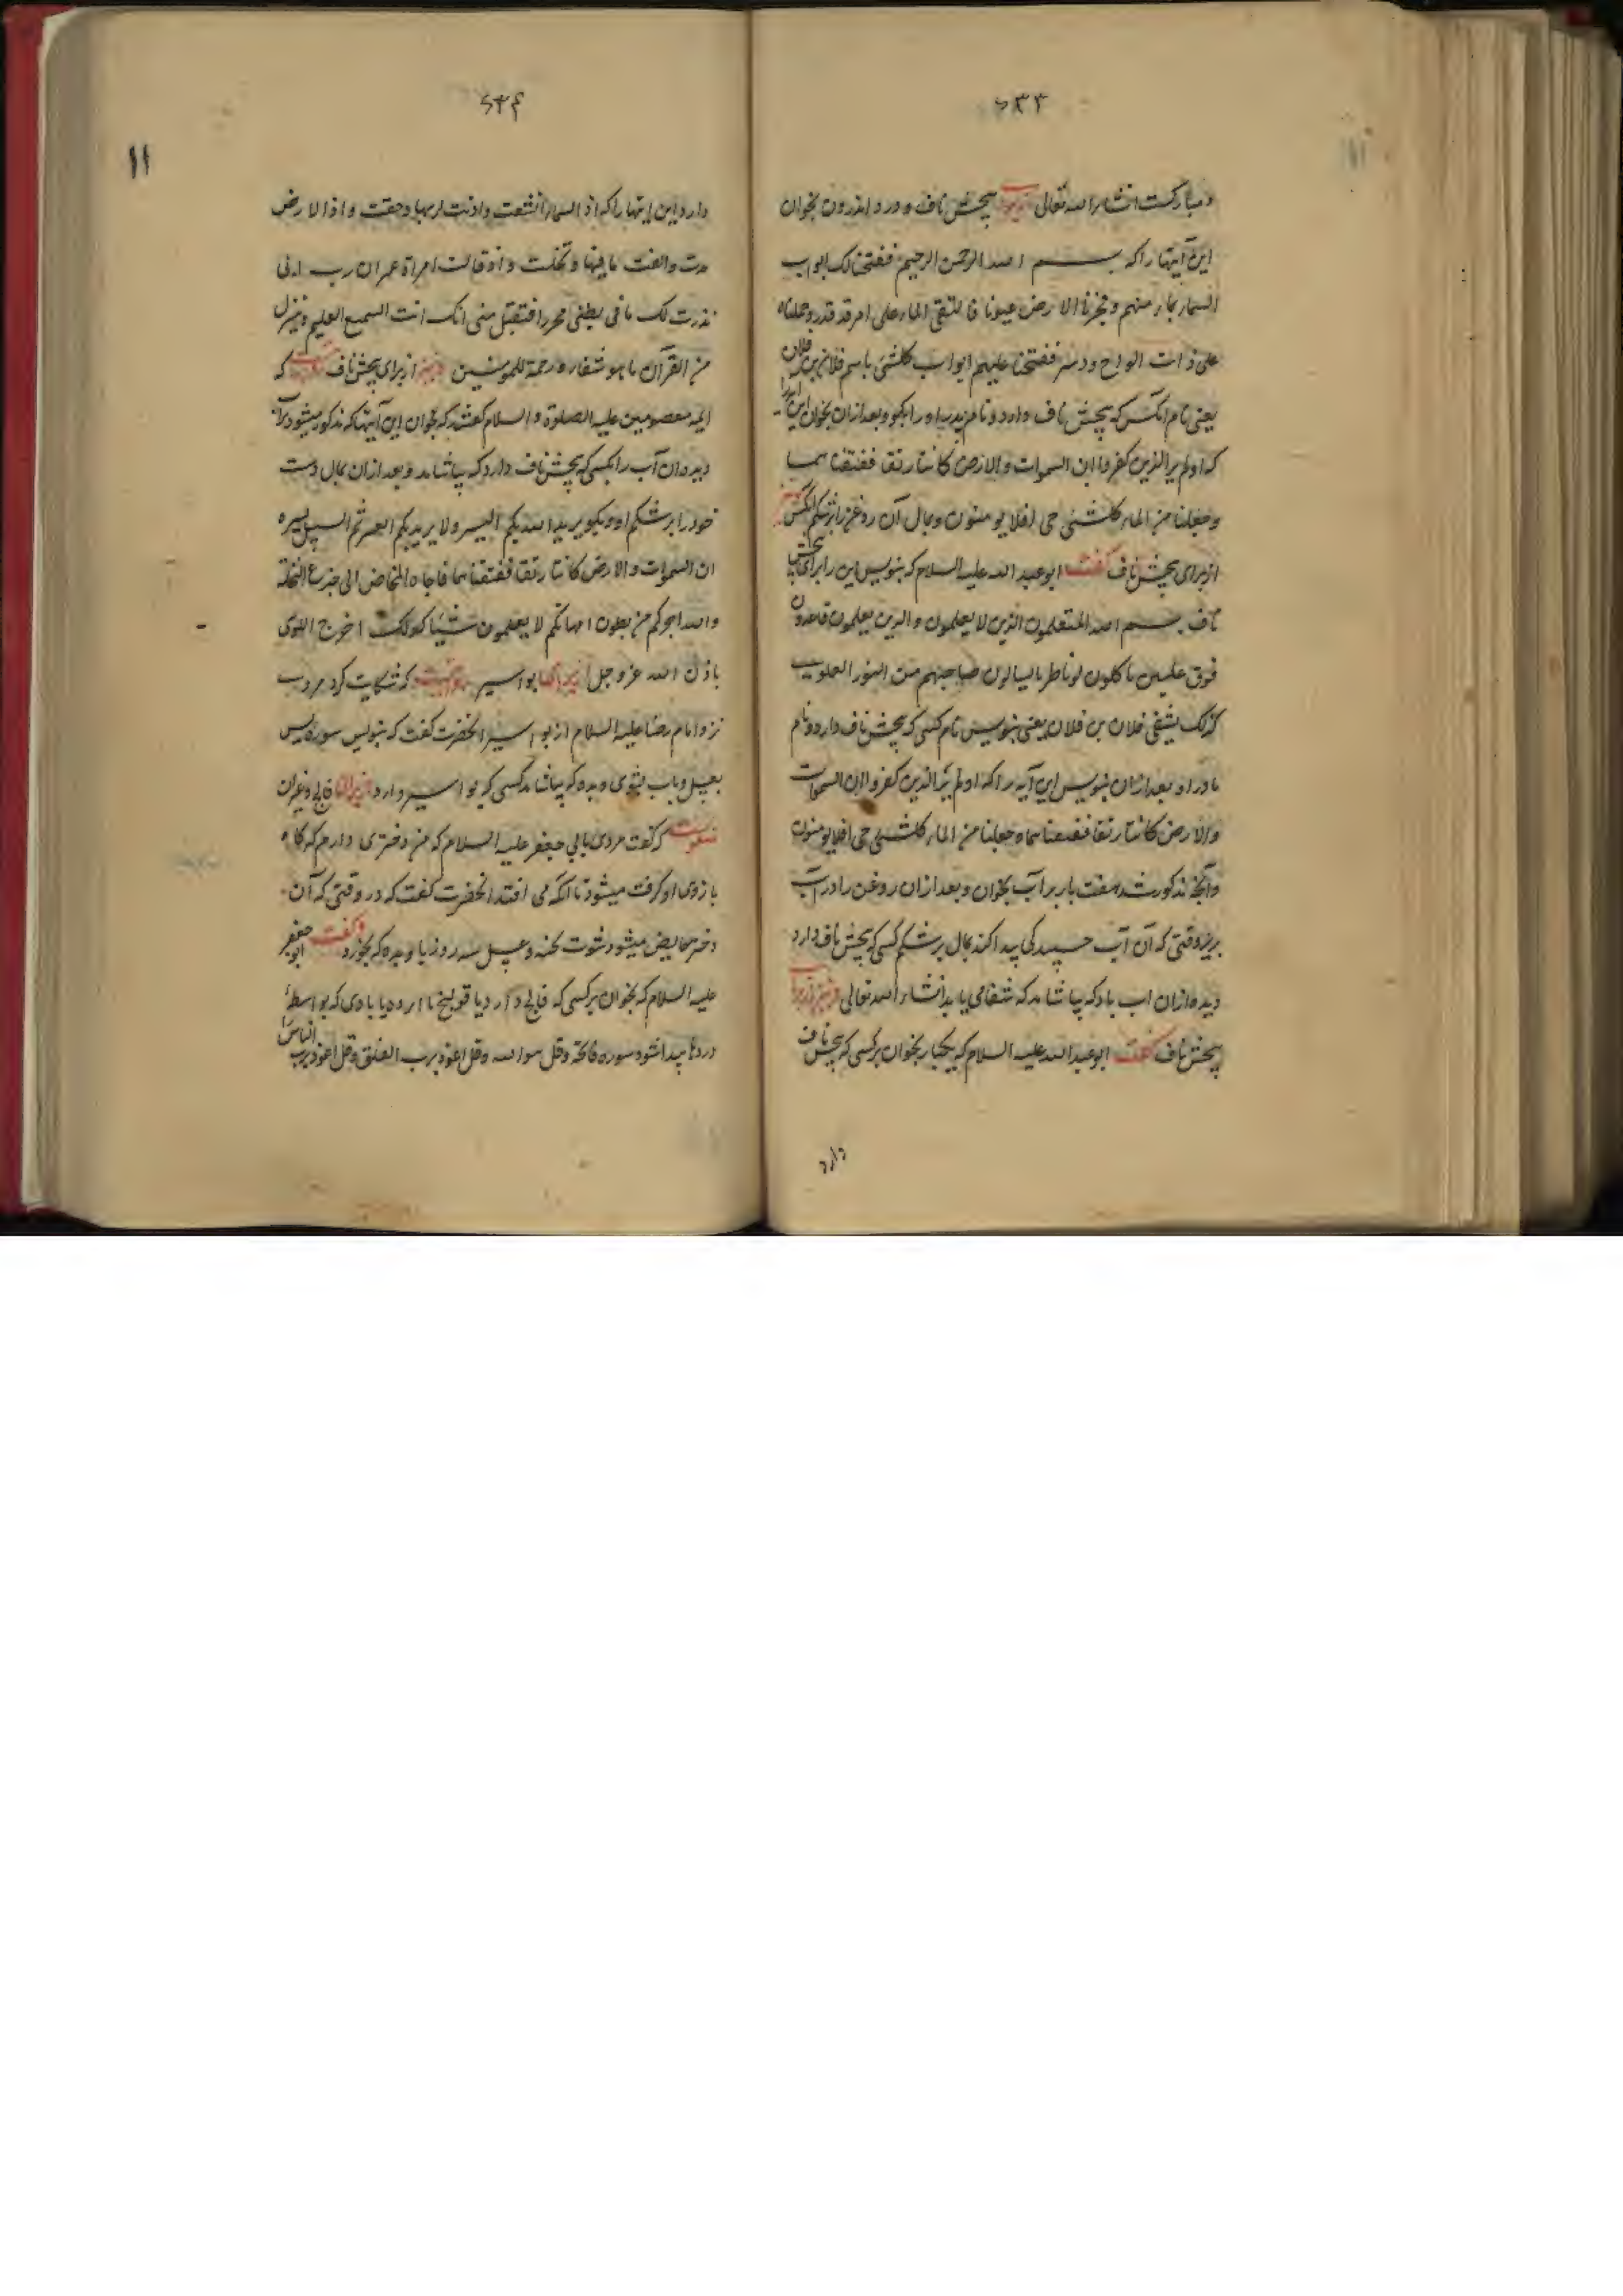 ۶۳۳
و مبارکست انشاء الله تعالی پیچش ناف و درد اندرون بخوان
این آیتها را که بسم الله الرحمن الرحیم ففتحنا لک ابواب
السماء بماء منهمر و فجرنا الارض عیونا فالتقی الماء علی امر قد قدر و حملناه
علی ذات الواح و دسر ففتحنا علیهم ابواب کلشئ باسم فلان بن فلان
یعنی نام آنکس که پیچش ناف دارد و نام پدر او را بگو و بعد از ان بخوان این
که اولم یر الذین کفروا ان السموات والارض کانتا رتقا ففتقنا هما
وجعلنا من الماء کلشئی حی افلا یومنون و بمال آن روغن را بر شکم آنکس
از برای پیچش ناف گفت ابو عبد الله علیه السلام که بنویس این را برای پیچش
ناف بسم الله المتعلمون الذین لا یعلمون والذین یعلمون قاعدون
فوق علیین یاکلون
کذلک یشفی فلان بن فلان یعنی بنویس نام کسی که پیچش ناف دارد و نام
مادر او بعد از ان بنویس این آیه را که اولم یر الذین کفروا ان السموات
والارض کانتا رتقا ففتقنا هما وجعلنا من الماء کلشئی حی افلا یومنون
وآنچه مذکور شد هفت بار بر آب بخوان و بعد از ان روغن را در آب
بریز وقتی که آن آب چسپیدگی پیدا کند بمال بر شکم کسی که پیچش ناف دارد
و بده از ان آب باو که بیاشامد که شفا می یابد انشاء الله تعالی
پیچش ناف گفت ابو عبد الله علیه السلام که یکبار بخوان بر کسی که پیچش ناف
دارد
۶۳۴
۱۱
دارد این آیتها را که اذا السماء انشقت واذنت لربها وحقت واذا الارض
مدت والقت ما فیها وتخلت واذ قالت امراة عمران رب انی
نذرت لک ما فی بطنی محررا فتقبل منی انک انت السمیع العلیم وننزل
من القرآن ما هو شفاء ورحمة للمومنین از برای پیچش ناف که
ائمه معصومین علیه الصلوة والسلام گفتند که بخوان این آیتها که مذکور میشود بر آب
و بده ان آب را بکسی که پیچش ناف دارد که بیاشامد و بعد از ان بمال دست
خود را بر شکم او و بگو یرید الله بکم الیسر ولا یرید بکم العسر ثم السبیل یسره
ان السموات والارض کانتا رتقا ففتقنا هما فاجاءه المخاض الی جذع النخلة
والله اخرجکم من بطون امهاتکم لا یعلمون شیئا کذلک اخرج
باذن الله عز وجل از برای بواسیر که شکایت کرد مردی
نزد امام رضا علیه السلام از بواسیر آنحضرت گفت که بنویس سوره یس
بعسل و بآب بشوی و بده که بیاشامد کسی که بواسیر دارد از برای فالج و غیر آن
که گفت مردی بابی جعفر علیه السلام که من دختری دارم که گاه
بازوی او کرفت میشود تا آنکه می افتد آنحضرت گفت که در وقتی که آن
دختر حایض میشود شبت پخته و عسل سه روز باو بده که بخورد و گفت ابو جعفر
علیه السلام که بخوان بر کسی که فالج دارد یا قولنج یا بادی که بواسطهٔ
دردها پیدا شود سوره فاتحه و قل هو الله و قل اعوذ برب الفلق و قل اعوذ برب الناس